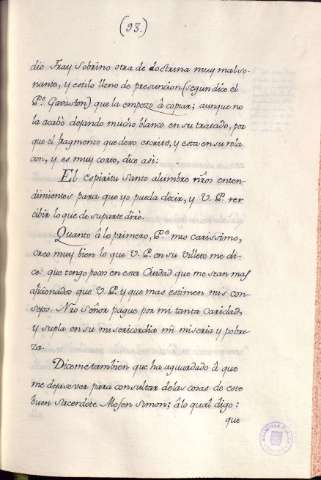 (93.)
dio Fray Sobrino otra de doctrina muy maliso-
nante, y estilo lleno de presuncion (segun dice el
Pe. Gavaston) que la empezò à copiar; aunque no
la acabò dejando mucho blanco en su tratado, por
que el fragmento que dexo escrito, y esta en su rela
cion, y es muy corto, dice asi:
El espiritu santo alumbre nros enten-
dimientos para que yo pueda decir, y V. P. per
cibir lo que de su parte dirè.
Quanto à lo primero, Pe. mio carissimo,
creo muy bien lo que V. P. en su villete me di-
ce: que tengo poco en esta Ciudad que me sean mas
aficionados que V. P. y que mas estimen mis con
sejos. Nro Señor pague por mi tanta caridad,
y supla en su misericordia mi miseria y pobre
za.
Diceme tambien que ha aguardado à que
me depusieren para consultar de las cosas de este
buen sacerdote Mosen Simon; à lo qual digo:
que